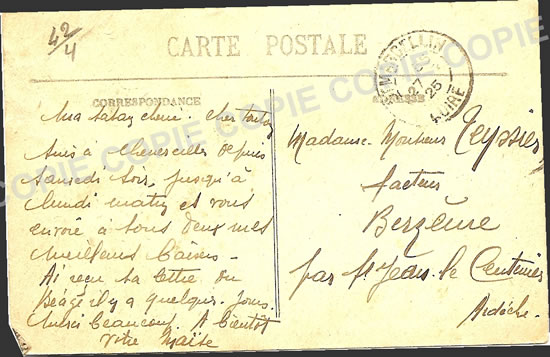 42
4
CARTE POSTALE
CORRESPONDANCE
ADRESSE
COPIE COPIE COPIE COPIE COPIE
MARCELLIN
27
25
LOIRE
Ma chérie. cher
Suis à depuis
Samedi soir, jusqu'à
lundi matin et vous
envoie à tous deux mes
meilleurs baisers.
Ai reçu ta lettre du
Péage il y a quelques jours.
Merci beaucoup. A bientôt
Votre
Madame. Monsieur Teyssier
facteur
Berzème
par St Jean le Centenier
Ardèche.